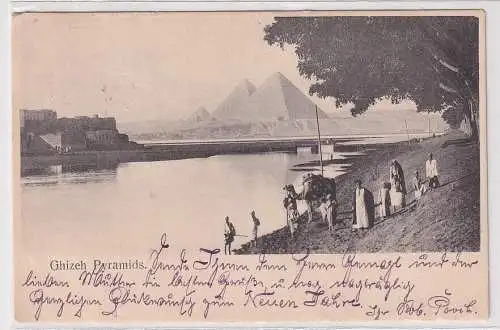 Ghizeh Pyramids.
Sende Ihnen dem Herrn Gemahl und der
lieben Mutter die besten Grüße u. bring nachträglich
herzlichen Glückwunsch zum Neuen Jahre.
Ihr Rob.